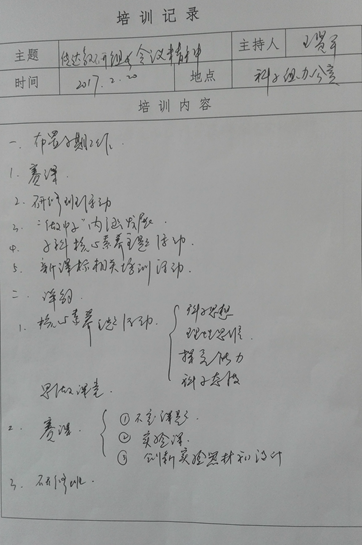 培训记录
主题 传达教研组长会议精神 主持人 王贤军
时间 2017.2.20 地点 科学组办公室
培训内容
一、布置学期工作
1. 赛课
2. 研修班活动
3. "做中学"内涵发展
4. 学科核心素养主题活动
5. 新课标相关培训活动
二、
1. 核心素养 活动 科学思想
理性思维
探究能力
科学态度
课堂
2. 赛课 ① 不定课题
② 实验课
③ 创新实验器材和设计
3. 研修班